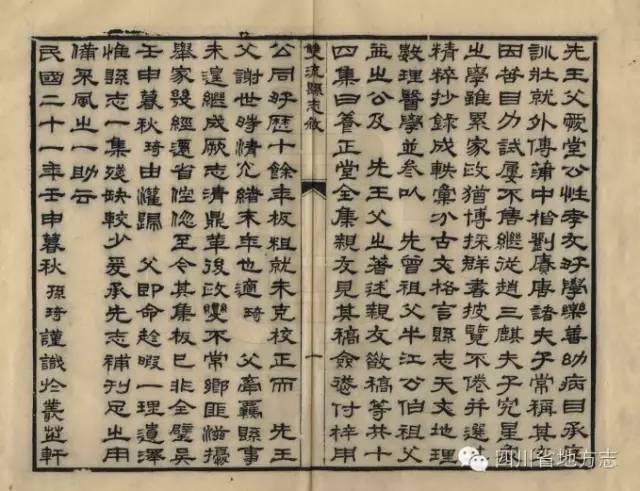 先王父堂公性孝友好學樂善幼病目承庭
訓壯就外傅蒲中楷劉賡唐諸夫子常稱其文
因苦目力試屢不售繼從趙三麒夫子究星命
之學雖累家政猶博採群書披覽不倦并選
精粹抄錄成帙彙分古文格言縣志天文地理
數理醫學並叁以 先曾祖父半江公伯祖父
並之公及 先王父之著述親友徵稿等共十
四集曰養正堂全集親友見其稿僉慫付梓用
雙流縣志敘
一
公同好歷十餘年板粗就未克校正而 先王
父謝世時清光緒末年也適琦 父牽羈縣事
未遑繼成厥志清鼎革後政變不常鄉匪滋擾
舉家幾經遷省倥傯至今其集板已非全璧矣
壬申暮秋琦由灌歸 父即命趁暇一理遺澤
惟縣志一集殘缺較少爰承先志補刊足之用
備采風之一助云
民國二十一年壬申暮秋 孫琦謹識於叢桂軒
四川省地方志